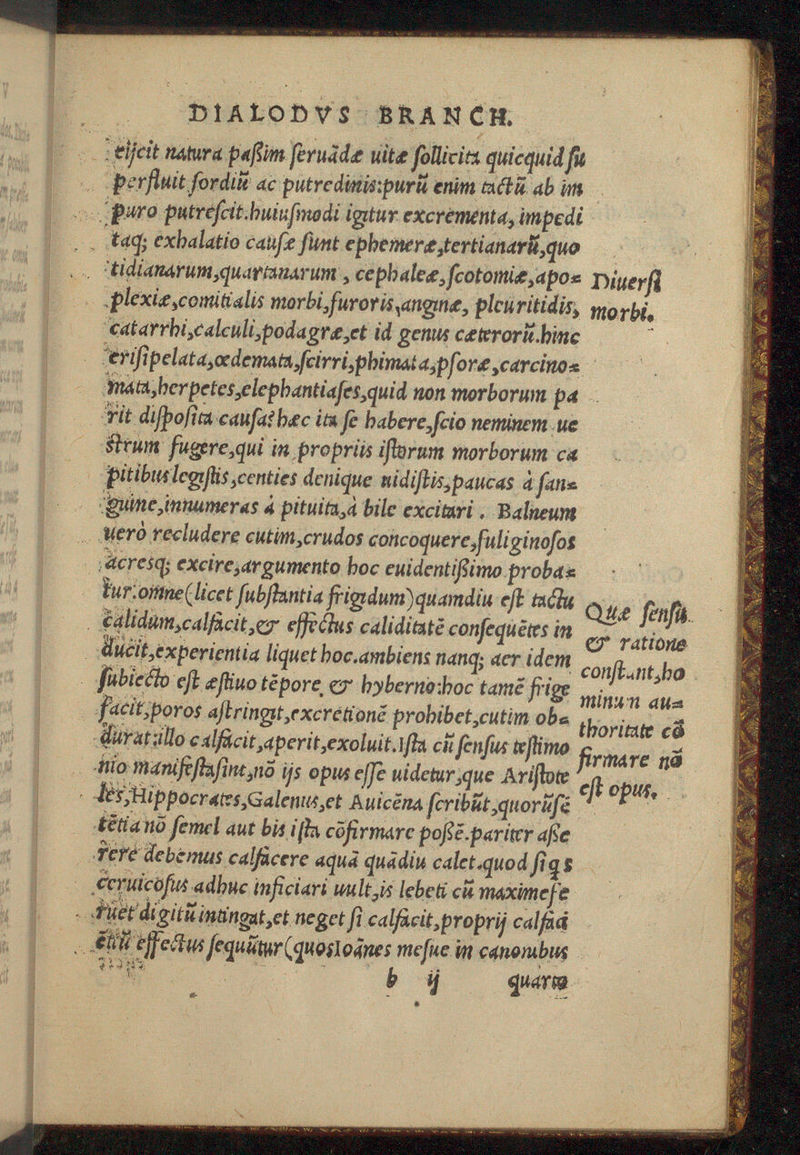 DIALODVS BRANCH.
eijcit natura paſſim feruãdæ uitæ ſollicita quicquid ſu
perfluit ſordiũ ac putredinis:purũ enim tactũ ab im
puro putreſcit.huiuſmodi igitur excrementa, impedi
taq; exhalatio cauſæ ſunt ephemeræ,tertianarũ,quo
tidianarum,quartanarum , cephaleæ,ſcotomiæ,apo=
plexiæ,comitialis morbi,furoris,anginæ, pleuritidis,
catarrhi,calculi,podagræ,et id genus cæterorũ.hinc
eriſipelata,œdemata,ſcirri,phimata,pſoræ,carcino=
mata,herpetes,elephantiaſes,quid non morborum pa
rit diſpoſita cauſa?hæc ita ſe habere,ſcio neminem ue
ſtrum fugere,qui in propriis iſtorum morborum ca
pitibus legiſtis,centies denique uidiſtis,paucas à ſan=
guine,innumeras à pituita,à bile excitari . Balneum
uerò recludere cutim,crudos concoquere,fuliginoſos
acresq; excire,argumento hoc euidentiſſimo probas=
tur.omne(licet ſubſtantia frigidum)quamdiu eſt tactu
calidum,calfacit,& effectus caliditatẽ conſequẽtes in
ducit,experientia liquet hoc.ambiens nanq; aer idem
ſubiecto eſt æſtiuo tẽpore, & hyberno:hoc tamẽ frige
facit,poros aſtringit,excretionẽ prohibet,cutim ob=
durat:illo calfacit,aperit,exoluit.Iſta cũ ſenſus teſtimo
nio manifeſta ſint,nõ ijs opus eſſe uidetur,que Ariſtote
les,Hippocrates,Galenus,et Auicẽna ſcribũt,quorũ ſẽ
tẽtia nõ ſemel aut bis iſta cõfirmare poſſẽ.pariter aſſe
rere debemus calfacere aquã quãdiu calet.quod ſi q s
ceruicoſus adhuc inficiari uult,is lebeti cũ maxime fe
ruet digitũ intingat,et neget ſi calfacit,proprij calfaci
entiũ effectus ſequũtur(quos Ioãnes meſue in canonibus
b ij quarto
Diuerſi
morbi.
Quæ ſenſu.
& ratione
conſtant,ho
minum au=
thoritate cõ
firmare nõ
eſt opus.